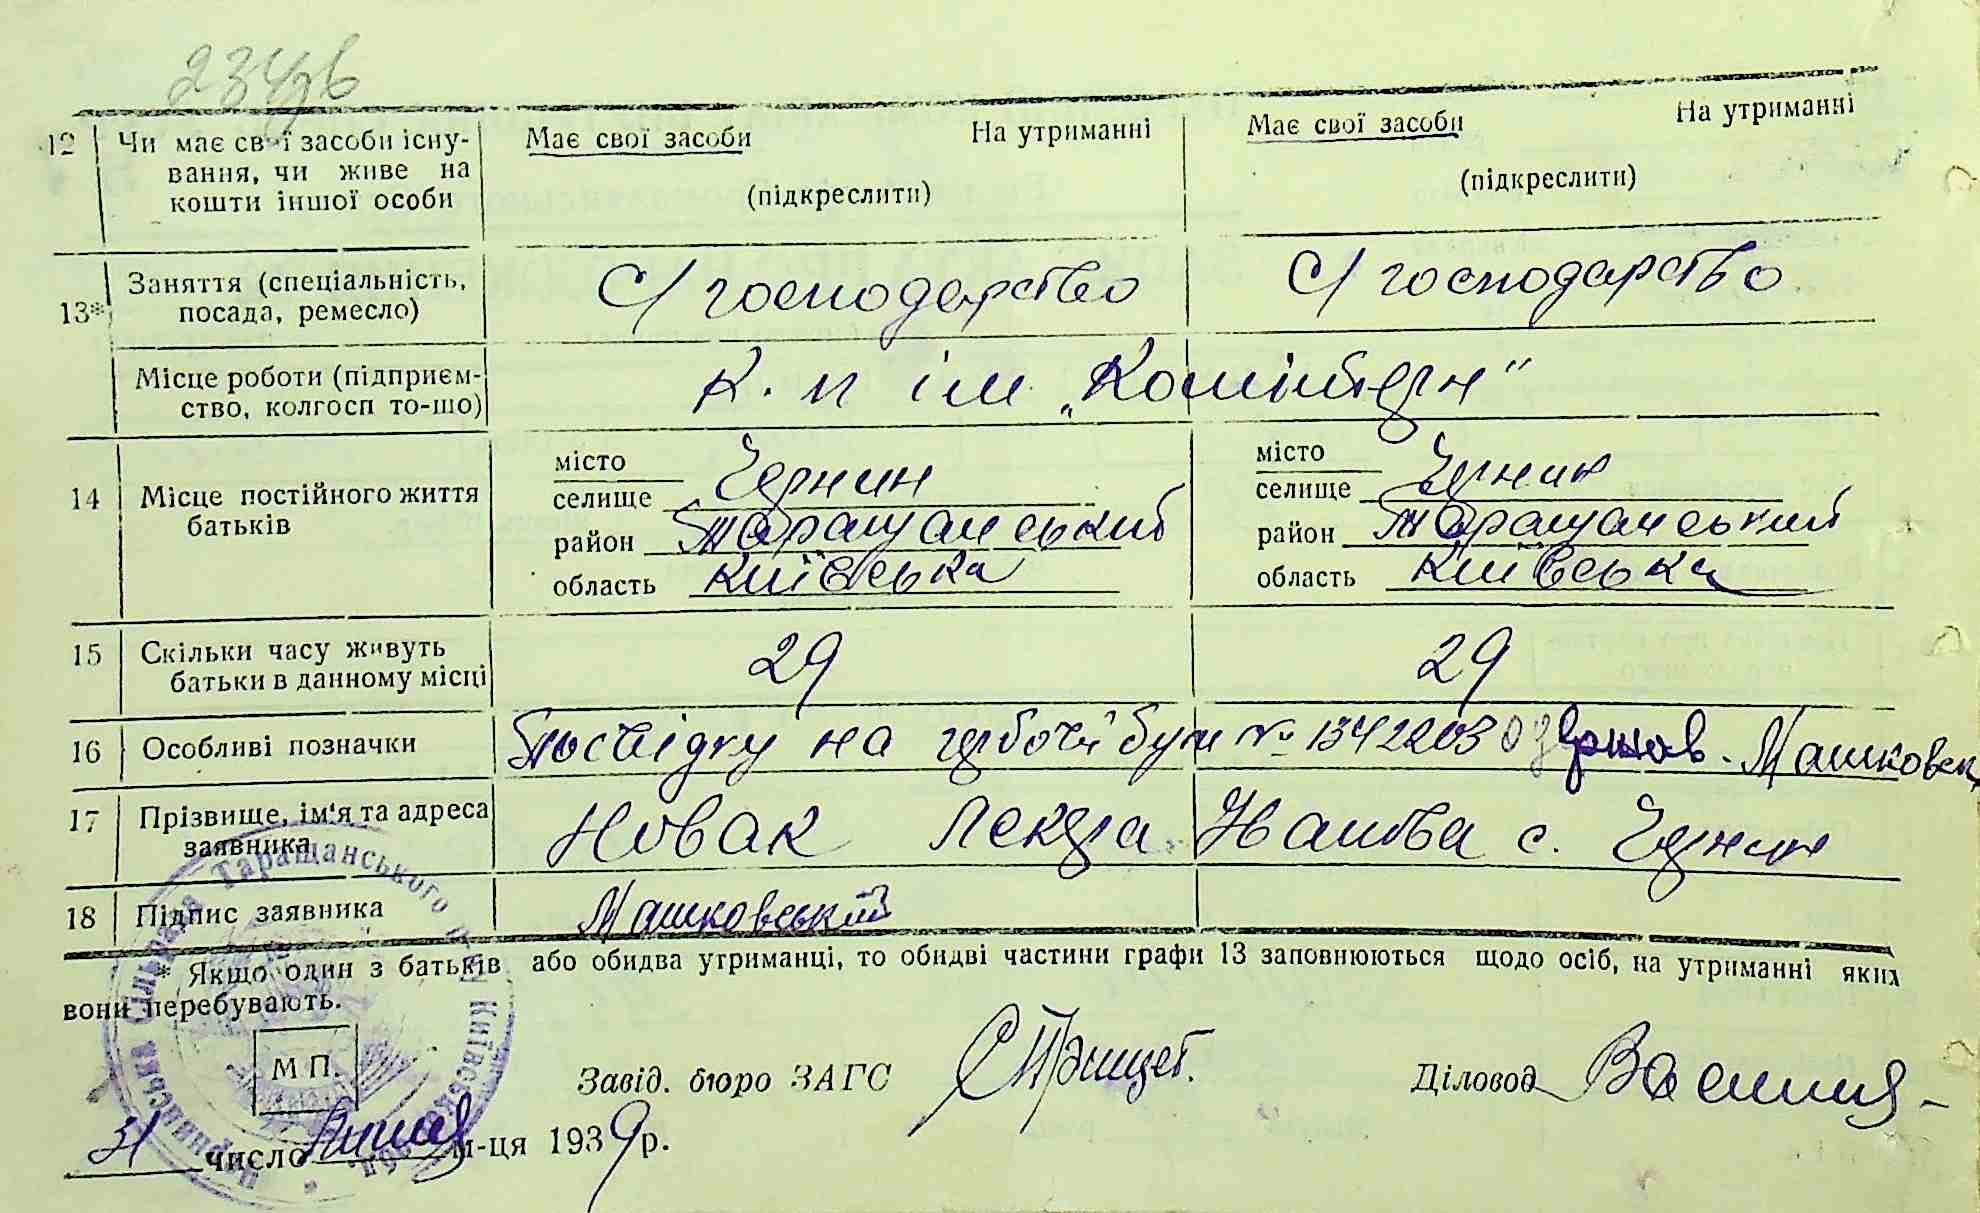 234
12 Чи має свої засоби існу- Має свої засоби На утриманні Має свої засоби На утриманні
вання, чи живе на
кошти іншої особи (підкреслити) (підкреслити)
13* Заняття (спеціальність, посада, ремесло) С/господарство С/господарство
Місце роботи (підприєм-
ство, колгосп то-що) К. п ім „Комінтерн"
14 Місце постійного життя
батьків
місто місто
селище Чернин селище Чернин
район Таращанський район Таращанський
область Київська область Київська
15 Скільки часу живуть
батьки в данному місці 29 29
16 Особливі позначки Посвідку на № 1342203 Машковськ
17 Прізвище, ім'я та адреса
заявника Новак Лекера с. Чернин
18 Підпис заявника Машковський
* Якщо один з батьків або обидва утриманці, то обидві частини графи 13 заповнюються щодо осіб, на утриманні яких
вони перебувають.
М П.
Завід. бюро ЗАГС Діловод
31 число Липня м-ця 1939 р.
Чернинська Сільрада Таращанського р-ну Київської обл.